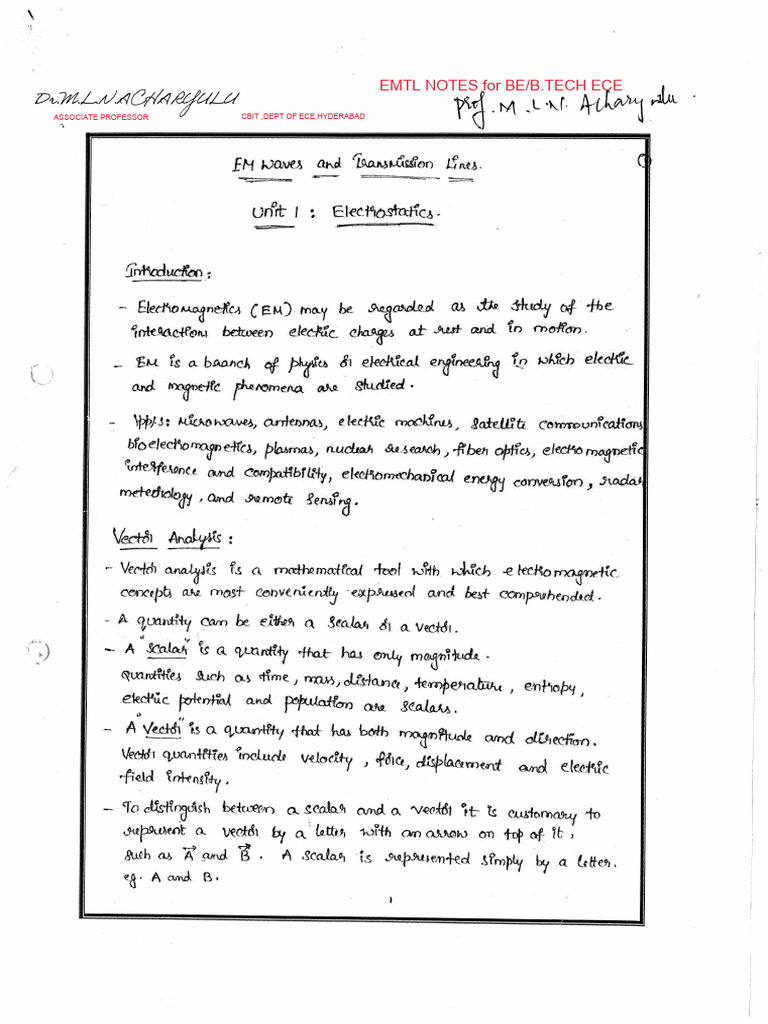 EMTL NOTES for BE/B.TECH ECE
Dr.M.L.N ACHARYULU
Prof. M. L.N. Acharyulu.
ASSOCIATE PROFESSOR CBIT ,DEPT OF ECE,HYDERABAD
EM Waves and Transmission Lines. 1
Unit 1 : Electrostatics.
Introduction:
- Electromagnetics (EM) may be regarded as the study of the
interactions between electric charges at rest and in motion.
- EM is a branch of physics or electrical engineering in which electric
and magnetic phenomena are studied.
- Appls: Microwaves, antennas, electric machines, satellite communications
bioelectromagnetics, plasmas, nuclear research, fiber optics, electromagnetic
interference and compatibility, electromechanical energy conversion, radar
meteorology, and remote sensing.
Vector Analysis:
- Vector analysis is a mathematical tool with which electromagnetic
concepts are most conveniently expressed and best comprehended.
- A quantity can be either a scalar or a vector.
- A "scalar" is a quantity that has only magnitude.
Quantities such as time, mass, distance, temperature, entropy,
electric potential and population are scalars.
- A "vector" is a quantity that has both magnitude and direction.
Vector quantities include velocity, force, displacement and electric
field intensity.
- To distinguish between a scalar and a vector it is customary to
represent a vector by a letter with an arrow on top of it,
such as A⃗ and B⃗. A scalar is represented simply by a letter.
eg. A and B.
1